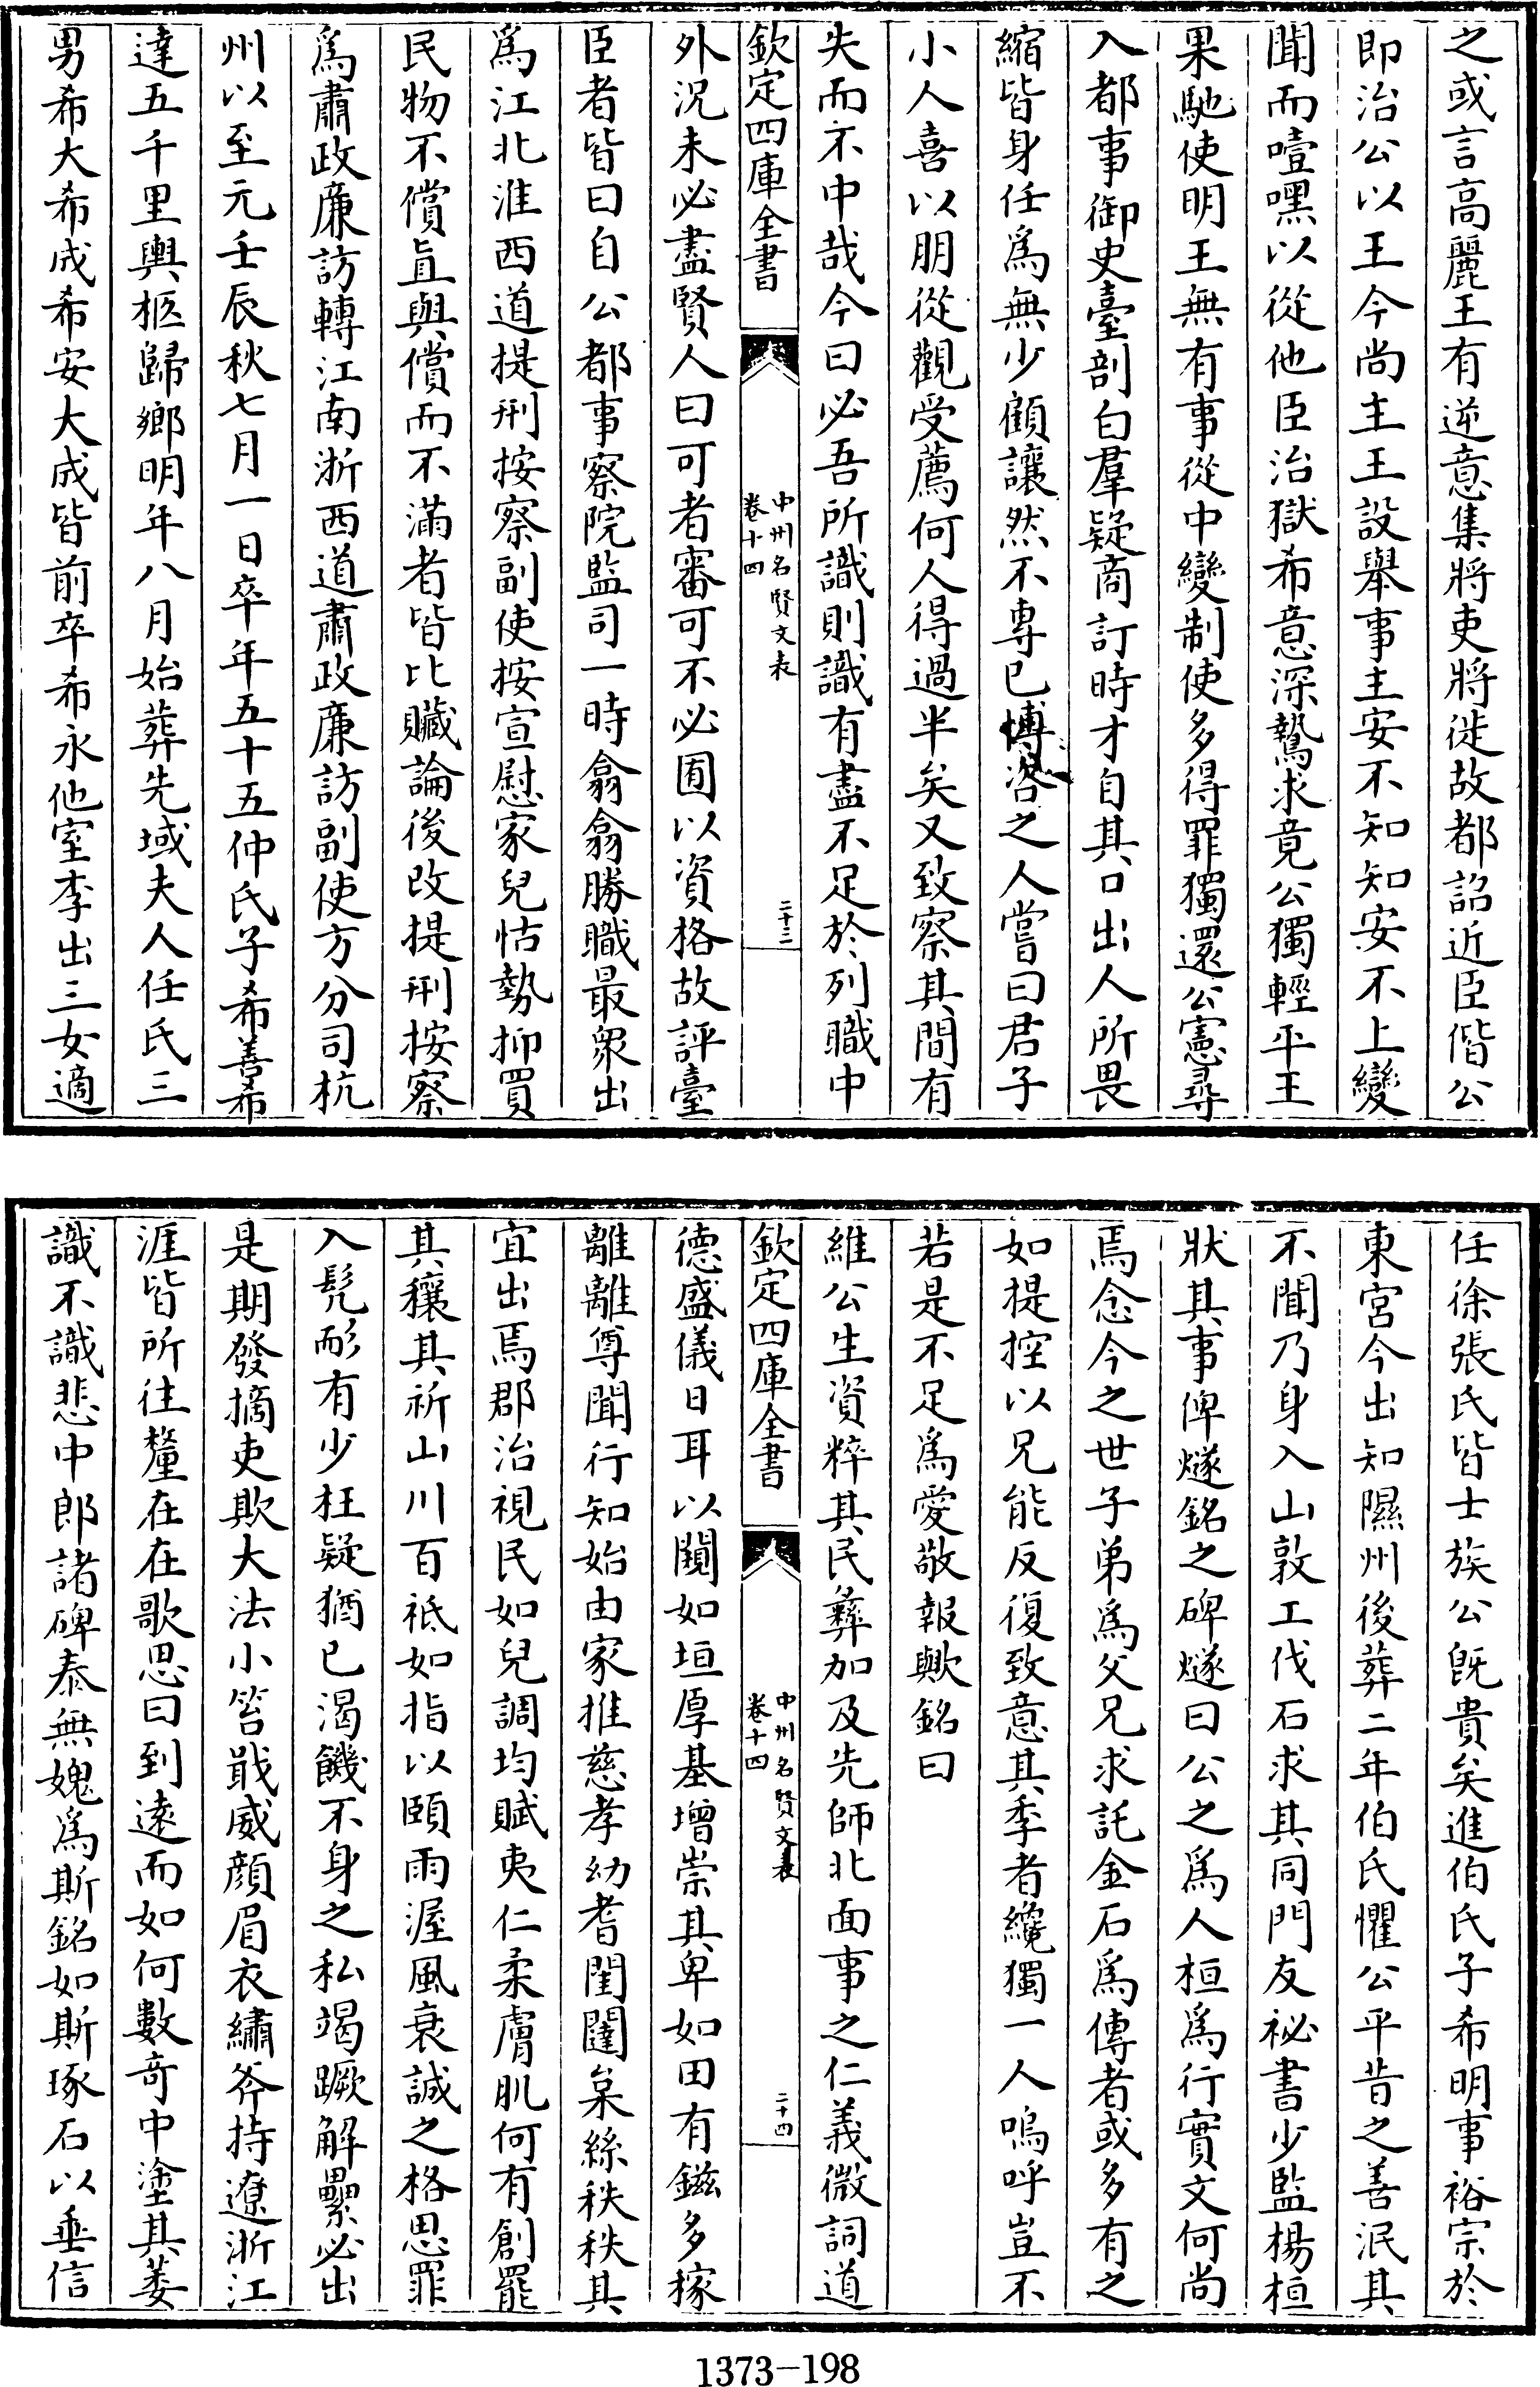 之或言高麗王有逆意集將吏將徙故都詔近臣偕公
即治公以王今尚主王設舉事主安不知知安不上變
聞而噎嘿以從他臣治獄希意深鷙求竟公獨輕平王
果馳使明王無有事從中變制使多得罪獨還公憲尋
入都事御史臺剖白羣疑商訂時才自其口出人所畏
縮皆身任爲無少顧讓然不專已博咨之人嘗曰君子
小人喜以朋從觀受薦何人得過半矣又致察其間有
失而不中哉今曰必吾所識則識有盡不足於列職中
欽定四庫全書
中州名賢文表
卷十四
二十三
外況未必盡賢人曰可者審可不必囿以資格故評臺
臣者皆曰自公都事察院監司一時翕翕勝職最衆出
爲江北淮西道提刑按察副使按宣慰家兒怙勢抑買
民物不償眞與償而不滿者皆比贓論後改提刑按察
爲肅政廉訪轉江南浙西道肅政廉訪副使方分司杭
州以至元壬辰秋七月一日卒年五十五仲氏子希善希
達五千里輿柩歸鄉明年八月始葬先域夫人任氏三
男希大希成希安大成皆前卒希永他室李出三女適
任徐張氏皆士族公旣貴矣進伯氏子希明事裕宗於
東宮今出知隰州後葬二年伯氏懼公平昔之善泯其
不聞乃身入山敦工伐石求其同門友祕書少監楊桓
狀其事俾燧銘之碑燧曰公之爲人桓爲行實文何尚
焉念今之世子弟爲父兄求託金石爲傳者或多有之
如提控以兄能反復致意其季者纔獨一人嗚呼豈不
若是不足爲愛敬報歟銘曰
維公生資粹其民彝加及先師北面事之仁義微詞道
欽定四庫全書
中州名賢文表
卷十四
二十四
德盛儀日耳以閱如垣厚基增崇其卑如田有鎡多稼
離離尊聞行知始由家推慈孝幼耆閨闥枲絲秩秩其
宜出焉郡治視民如兒調均賦夷仁柔膚肌何有創罷
其穰其祈山川百祗如指以頤雨渥風衰誠之格思罪
入髠耏有少枉疑猶已渴饑不身之私竭蹶解纍必出
是期發摘吏欺大法小笞戢威顏眉衣繡斧持遼浙江
涯皆所往釐在在歌思曰到遠而如何數奇中塗其萎
識不識悲中郎諸碑泰無媿爲斯銘如斯琢石以垂信
1373-198